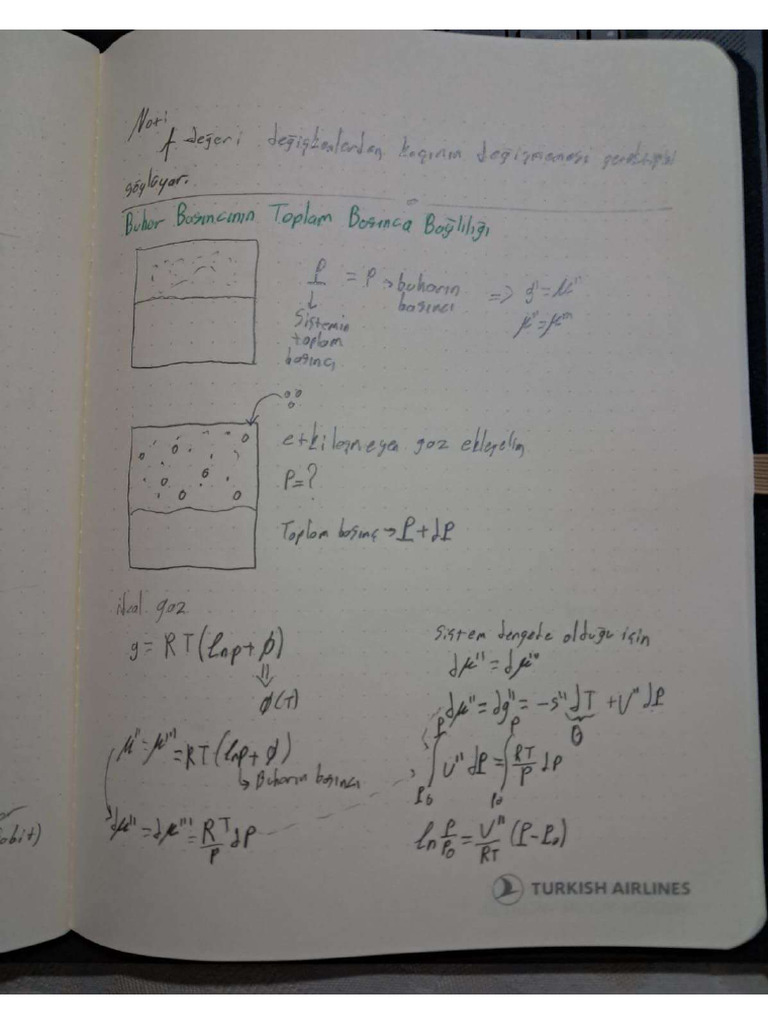 Not:
f değeri değişkenlerden kaçının değişmemesi gerektiğini
söylüyor.
Buhar Basıncının Toplam Basınca Bağlılığı
P = p → buharın basıncı => g'' = μ''
μ'' = μ'''
↓
Sistemin
toplam
basıncı
etkileşmeyen gaz ekleyelim
P=?
Toplam basınç → P + dP
ideal gaz
g = RT(lnp + φ)
φ(T)
μ'' = μ''' = RT(lnp + φ)
↳ Buharın basıncı
dμ'' = dμ''' = RT/p dp
Sistem dengede olduğu için
dμ'' = dμ'''
dμ'' = dg'' = -s'' dT + v'' dP
0
∫ P₀ P v'' dP = ∫ p₀ p RT/p dp
ln p/p₀ = v''/RT (P - P₀)
sabit)
TURKISH AIRLINES